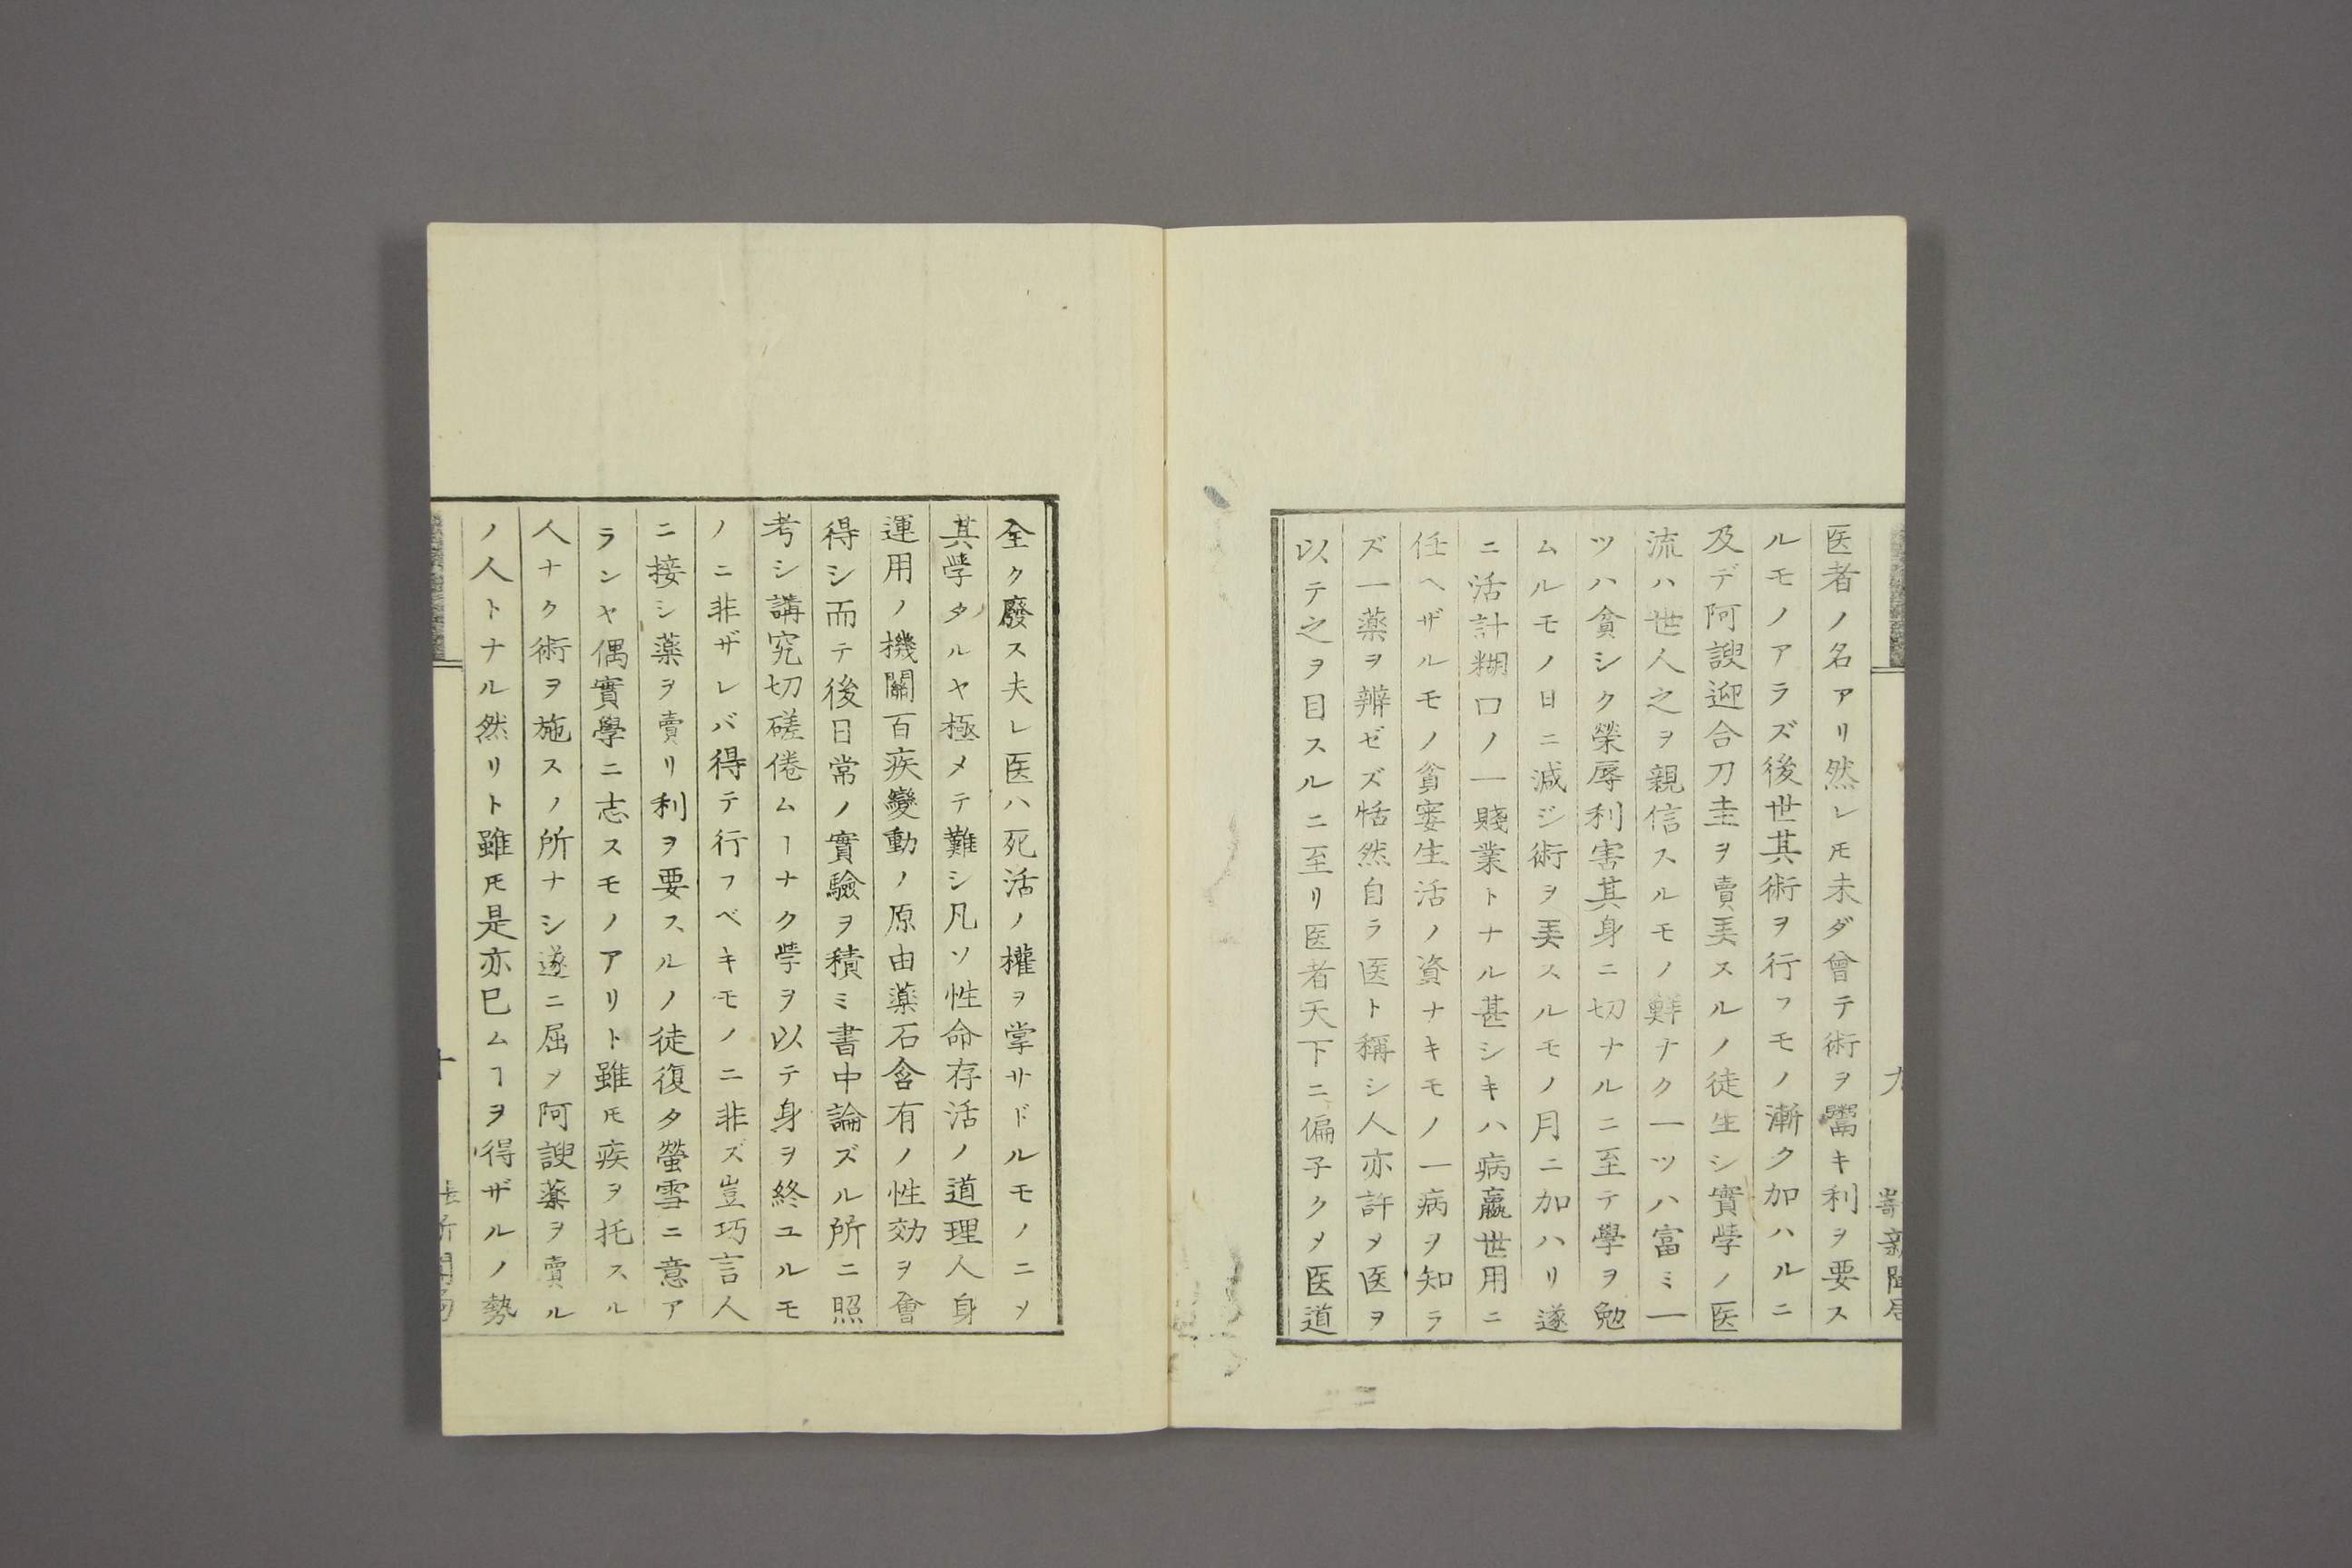 医者ノ名アリ然レ𪜈未ダ曾テ術ヲ鬻キ利ヲ要ス
ルモノアラズ後世其術ヲ行フモノ漸ク加ハルニ
及デ阿諛迎合刀圭ヲ賣美スルノ徒生シ實斈ノ医
流ハ世人之ヲ親信スルモノ鮮ナク一ツハ富ミ一
ツハ貧シク榮辱利害其身ニ切ナルニ至テ學ヲ勉
ムルモノ日ニ減ジ術ヲ美スルモノ月ニ加ハリ遂
ニ活計糊口ノ一賤業トナル甚シキハ病羸世用ニ
任ヘザルモノ貧窭生活ノ資ナキモノ一病ヲ知ラ
ズ一薬ヲ辨ゼズ恬然自ラ医ト稱シ人亦許メ医ヲ
以テ之ヲ目スルニ至リ医者天下ニ偏子クメ医道
九
全ク廢ス夫レ医ハ死活ノ權ヲ掌サドルモノニメ
其斈タルヤ極メテ難シ凡ソ性命存活ノ道理人身
運用ノ機關百疾變動ノ原由薬石含有ノ性効ヲ會
得シ而テ後日常ノ實驗ヲ積ミ書中論ズル所ニ照
考シ講究切磋倦ムヿナク斈ヲ以テ身ヲ終ユルモ
ノニ非ザレバ得テ行フベキモノニ非ズ豈巧言人
ニ接シ薬ヲ賣リ利ヲ要スルノ徒復タ螢雪ニ意ア
ランヤ偶實學ニ志スモノアリト雖𪜈疾ヲ托スル
人ナク術ヲ施スノ所ナシ遂ニ屈メ阿諛薬ヲ賣ル
ノ人トナル然リト雖𪜈是亦巳ムヿヲ得ザルノ勢
十